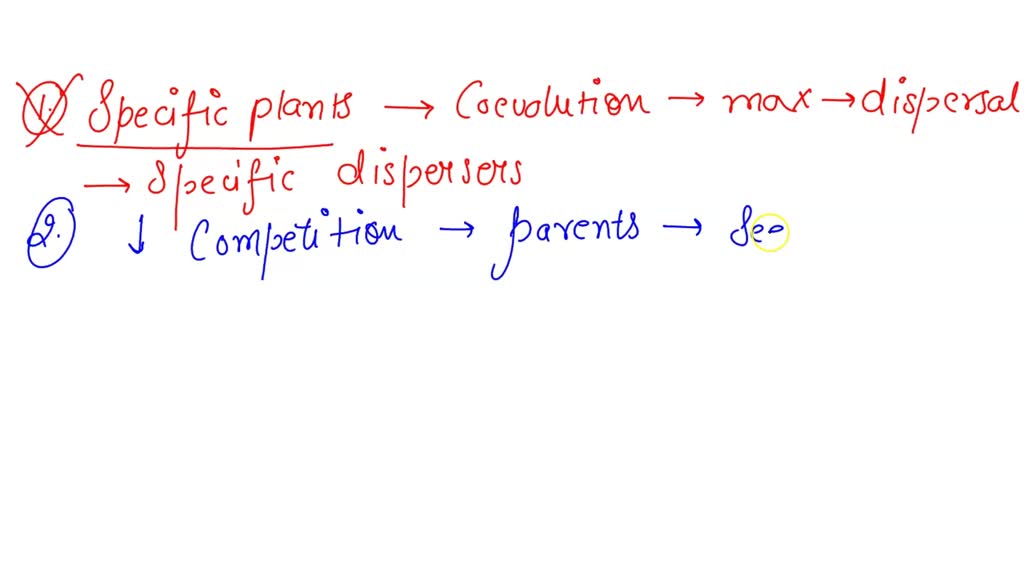 1. Specific plants → Coevolution → max → dispersal
→ Specific dispersers
2. ↓ Competition → parents → See